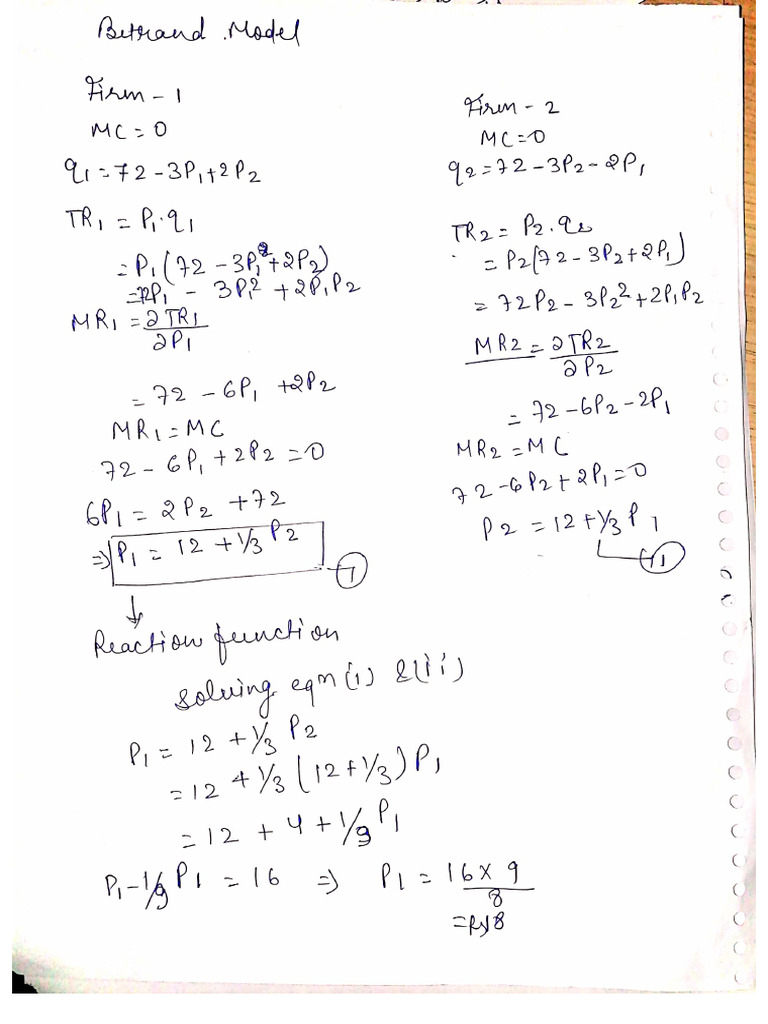 Betrand Model
Firm - 1
MC = 0
q1 = 72 - 3P1 + 2P2
TR1 = P1 · q1
= P1 (72 - 3P1² + 2P2)
= 72P1 - 3P1² + 2P1P2
MR1 = ∂TR1 / ∂P1
= 72 - 6P1 + 2P2
MR1 = MC
72 - 6P1 + 2P2 = 0
6P1 = 2P2 + 72
⇒ P1 = 12 + 1/3 P2
Reaction function
Firm - 2
MC = 0
q2 = 72 - 3P2 - 2P1
TR2 = P2 · q2
= P2 (72 - 3P2 + 2P1)
= 72P2 - 3P2² + 2P1P2
MR2 = ∂TR2 / ∂P2
= 72 - 6P2 - 2P1
MR2 = MC
72 - 6P2 + 2P1 = 0
P2 = 12 + 1/3 P1
solving eqn (i) & (ii)
P1 = 12 + 1/3 P2
= 12 + 1/3 (12 + 1/3) P1
= 12 + 4 + 1/9 P1
P1 - 1/9 P1 = 16 ⇒ P1 = 16 × 9 / 8